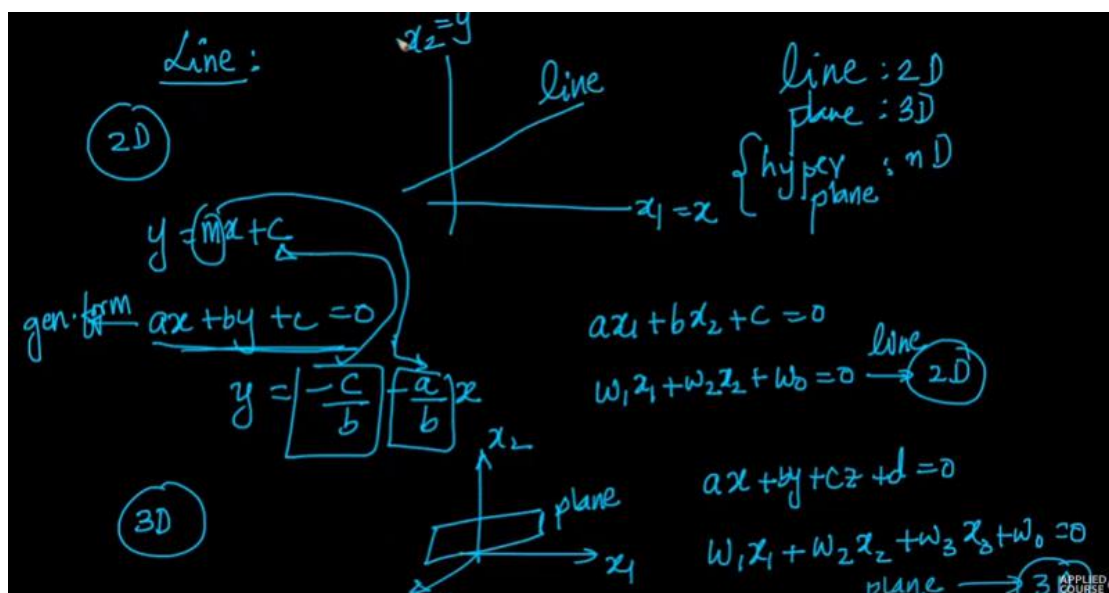 Line :
x₂ = y
line
line : 2D
plane : 3D
{ hyper plane : nD
2D
x₁ = x
y = mx + c
gen. form
ax + by + c = 0
y = -c/b - a/b x
ax₁ + bx₂ + c = 0
w₁x₁ + w₂x₂ + w₀ = 0 → line 2D
3D
x₂
plane
x₁
ax + by + cz + d = 0
w₁x₁ + w₂x₂ + w₃x₃ + w₀ = 0
plane → 3D
APPLIED
COURSE